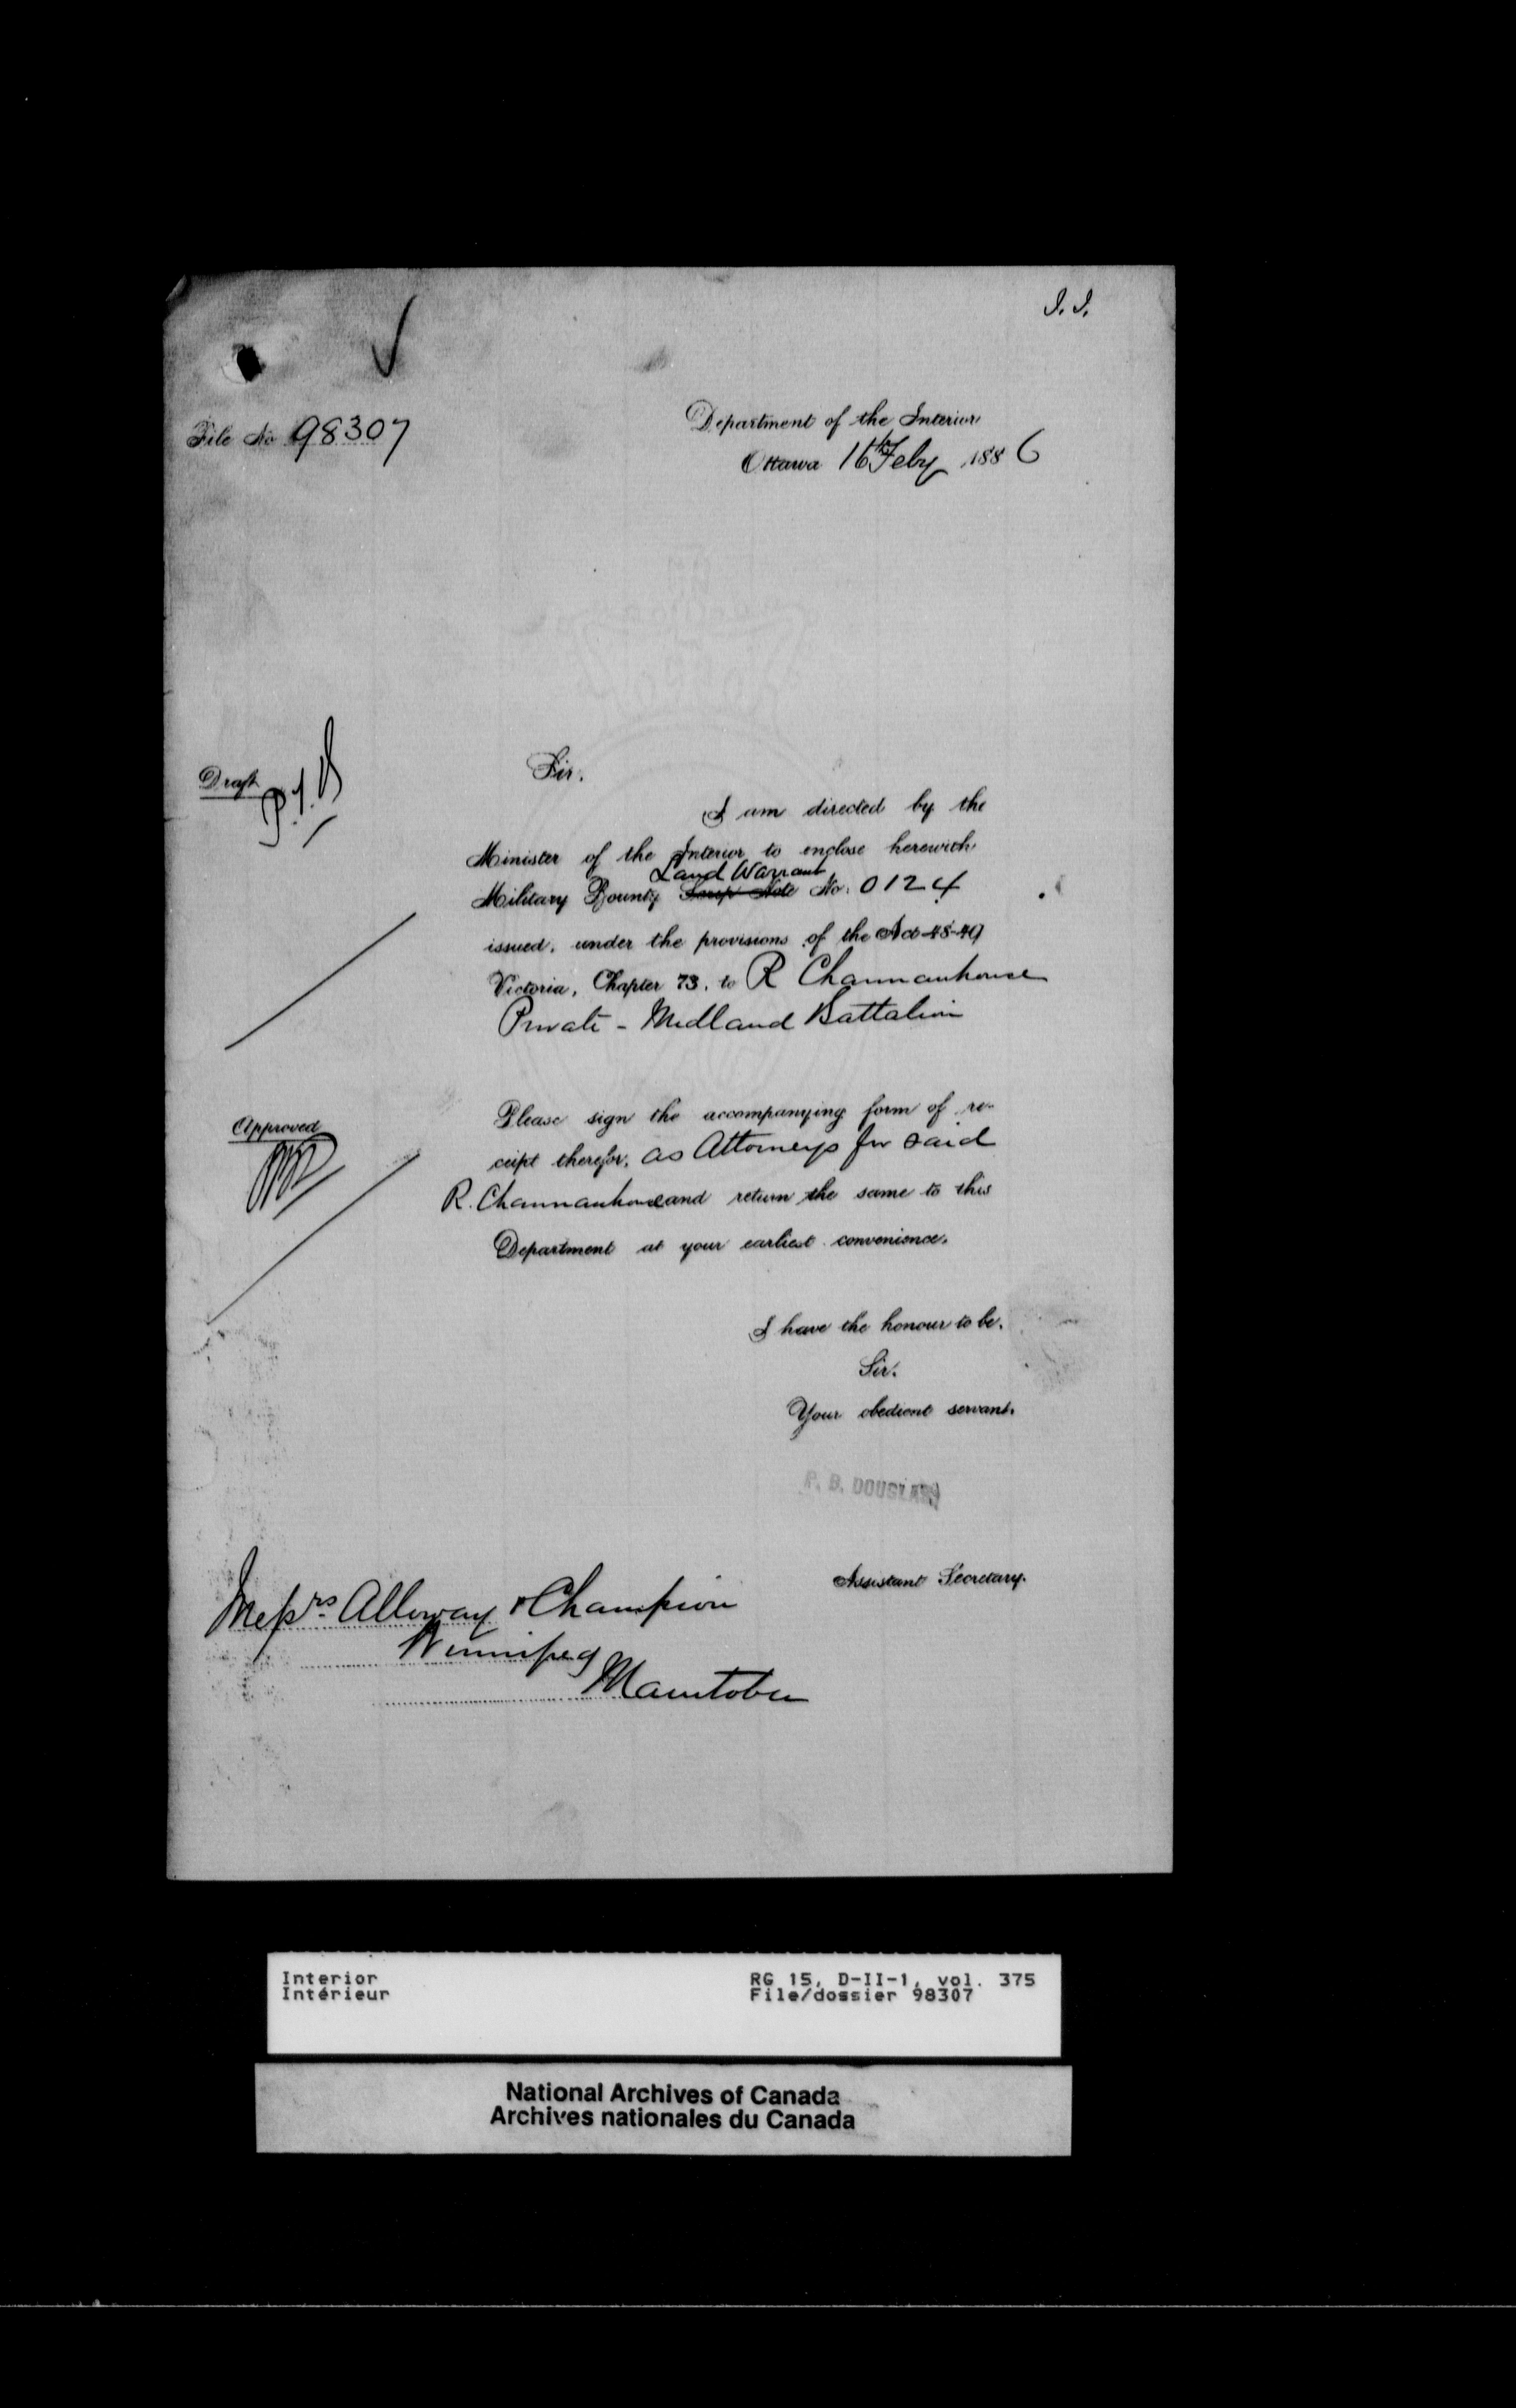 I. I.
File No 98307
Department of the Interior
Ottawa 16th Feby 1886
Draft
Sir,
I am directed by the
Minister of the Interior to enclose herewith
Land Warrant
Military Bounty Scrip Note No. 0124
issued, under the provisions of the Act 48-49
Victoria, Chapter 73, to R Channanhouse
Private - Midland Battalion
Approved
Please sign the accompanying form of re-
ceipt therefor, as Attorneys for said
R. Channanhouse and return the same to this
Department at your earliest convenience.
I have the honour to be,
Sir,
Your obedient servant,
P. B. DOUGLAS,
Assistant Secretary.
Messrs Alloway & Champion
Winnipeg
Manitoba
Interior
Intérieur
RG 15, D-II-1, vol. 375
File/dossier 98307
National Archives of Canada
Archives nationales du Canada